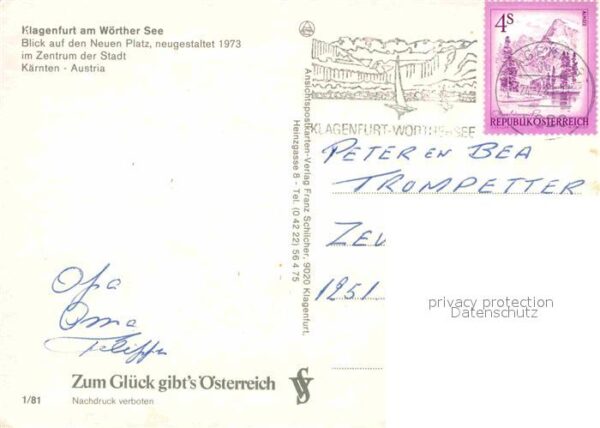 Klagenfurt am Wörther See
Blick auf den Neuen Platz, neugestaltet 1973
im Zentrum der Stadt
Kärnten - Austria
Opa
Oma
Zum Glück gibt's Österreich
1/81
Nachdruck verboten
Ansichtspostkarten-Verlag Franz Schilcher, 9020 Klagenfurt,
Heinzgasse 8 - Tel. (0 42 22) 56 4 75
KLAGENFURT-WÖRTHERSEE
4S
ALMSEE
REPUBLIK ÖSTERREICH
PETER EN BEA
TROMPETTER
ZEV
1251
privacy protection
Datenschutz